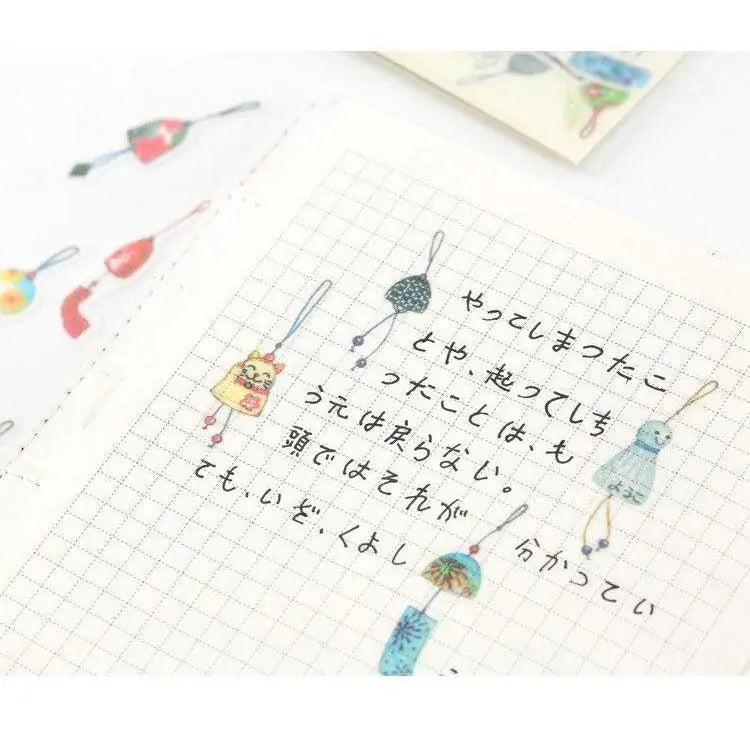 やってしまつたこ
とや、起ってしち
つたことは、も
う元は戻らない。
頭ではそれが 分かってい
ても、いざ、くよし
ようこ